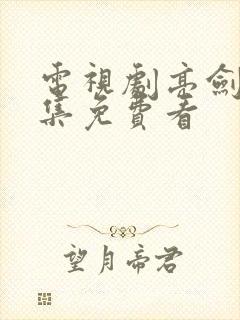 電視劇亮劍
集免費看
望月帝君